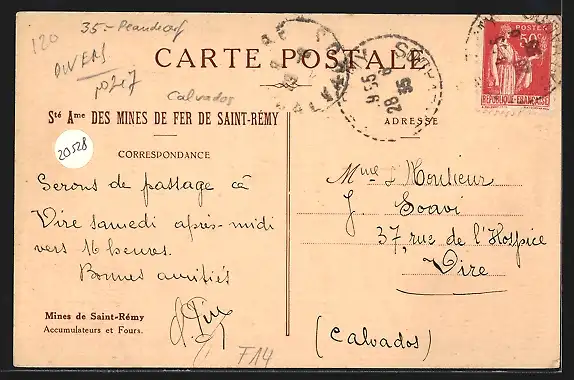 120
35-
DIVERS
Calvados
CARTE POSTALE
POSTES
50c
RÉPUBLIQUE-FRANÇAISE
9 55
28 - 8
35
Sté Ame DES MINES DE FER DE SAINT-RÉMY
ADRESSE
20528
CORRESPONDANCE
Serons de passage cá
Vire samedi après-midi
vers 16 heures.
Bonnes amitiés
Mme & Monsieur
J Soavi
37, rue de l'Hospice
Vire
(Calvados)
Mines de Saint-Rémy
Accumulateurs et Fours.
F14